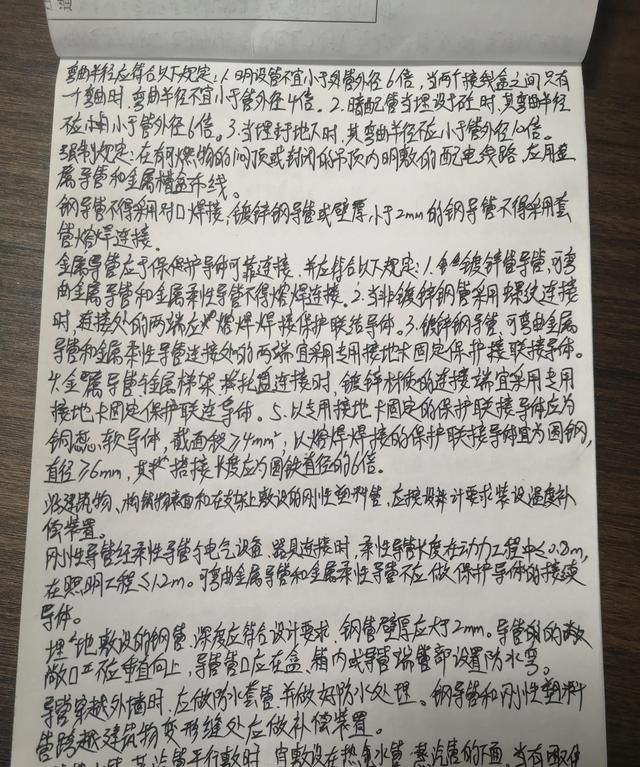 弯曲半径应符合以下规定:1.明设管不宜小于外管外径6倍,当两个接线盒之间只有
一个弯曲时,弯曲半径不宜小于管外径4倍。2.暗配管当埋设于砼时,其弯曲半径
不应小于管外径6倍。3.当埋于地下时,其弯曲半径不应小于管外径10倍。
强制规定:在有可燃物的闷顶或封闭的吊顶内明敷的配电线路,应用金
属导管和金属槽盒布线。
钢导管不得采用对口焊接;镀锌钢导管或壁厚小于2mm的钢导管不得采用套
管熔焊连接。
金属导管应于保护导体可靠连接,并应符合以下规定:1.镀锌管导管,可弯
曲金属导管和金属柔性导管不得熔焊连接。2.当非镀锌钢管采用螺纹连接
时,连接处的两端应熔焊焊接保护联结导体。3.镀锌钢导管、可弯曲金属
导管和金属柔性导管连接处的两端宜采用专用接地卡固定保护接联接导体。
4.金属导管与金属梯架、托盘连接时,镀锌材质的连接端宜采用专用
接地卡固定保护联连导体。5.以专用接地卡固定的保护联接导体应为
铜芯软导体,截面积≥4mm²,以熔焊焊接的保护联接导体宜为圆钢,
直径≥6mm,其搭接长度应为圆钢直径的6倍。
沿建筑物、构筑物表面和在支架上敷设的刚性塑料管,应按设计要求装设温度补
偿装置。
刚性导管经柔性导管与电气设备、器具连接时,柔性导管长度在动力工程中≤0.8m,
在照明工程≤1.2m。可弯曲金属导管和金属柔性导管不应做保护导体的接续
导体。
埋地敷设的钢管,深度应符合设计要求,钢管壁厚应大于2mm。导管的
敞口不应垂直向上,导管管口应在盒、箱内或导管端管部设置防水弯。
导管穿越外墙时,应做防水套管,并做好防水处理。钢导管和刚性塑料
管跨越建筑物变形缝处应做补偿装置。
蒸汽管平行敷时,宜敷设在热水管、蒸汽管的下面,当有困难